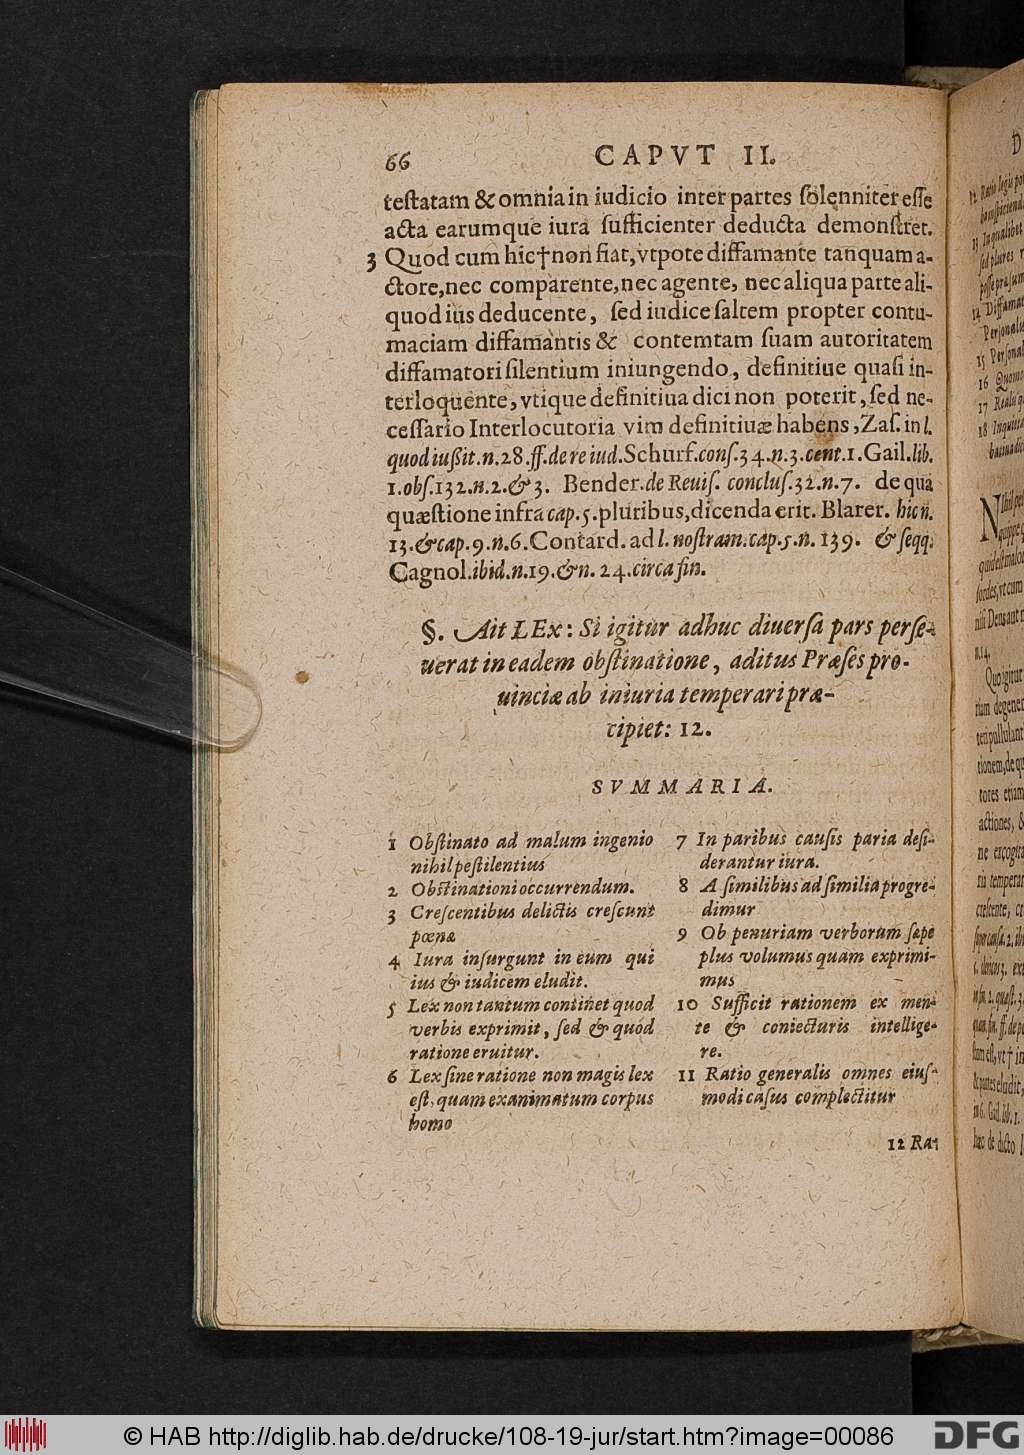 66 CAPVT II.
teſtatam & omnia in iudicio inter partes ſolenniter eſſe
acta earumque iura ſufficienter deducta demonſtret.
3 Quod cum hic † non fiat, vtpote diffamante tanquam a-
ctore, nec comparente, nec agente, nec aliqua parte ali-
quod ius deducente, ſed iudice ſaltem propter contu-
maciam diffamantis & contemtam ſuam autoritatem
diffamatori ſilentium iniungendo, definitiue quaſi in-
terloquente, vtique definitiua dici non poterit, ſed ne-
ceſſario Interlocutoria vim definitiuæ habens, Zaſ. in l.
quod iußit. n. 28. ff. de re iud. Schurf. conſ. 34. n. 3. cent. 1. Gail. lib.
1. obſ. 132. n. 2. & 3. Bender. de Reuiſ. concluſ. 32. n. 7. de qua
quæſtione infra cap. 5. pluribus, dicenda erit. Blarer. hic n.
13. & cap. 9. n. 6. Contard. ad l. noſtram. cap. 5. n. 139. & ſeqq.
Cagnol. ibid. n. 19. & n. 24. circa fin.
§. Ait LEx: Si igitur adhuc diuerſa pars perſe-
uerat in eadem obſtinatione, aditus Præſes pro-
uinciæ ab iniuria temperari præ-
cipiet: 12.
SVMMARIA.
1 Obſtinato ad malum ingenio
nihil peſtilentius
2 Obſtinationi occurrendum.
3 Creſcentibus delictis creſcunt
pœnæ
4 Iura inſurgunt in eum qui
ius & iudicem eludit.
5 Lex non tantum continet quod
verbis exprimit, ſed & quod
ratione eruitur.
6 Lex ſine ratione non magis lex
eſt, quam exanimatum corpus
homo
7 In paribus cauſis paria deſi-
derantur iura.
8 A ſimilibus ad ſimilia progre-
dimur
9 Ob penuriam verborum ſæpe
plus volumus quam exprimi-
mus
10 Sufficit rationem ex men-
te & coniecturis intellige-
re.
11 Ratio generalis omnes eiuſ-
modi caſus complectitur
12 Ra-
© HAB http://diglib.hab.de/drucke/108-19-jur/start.htm?image=00086
DFG